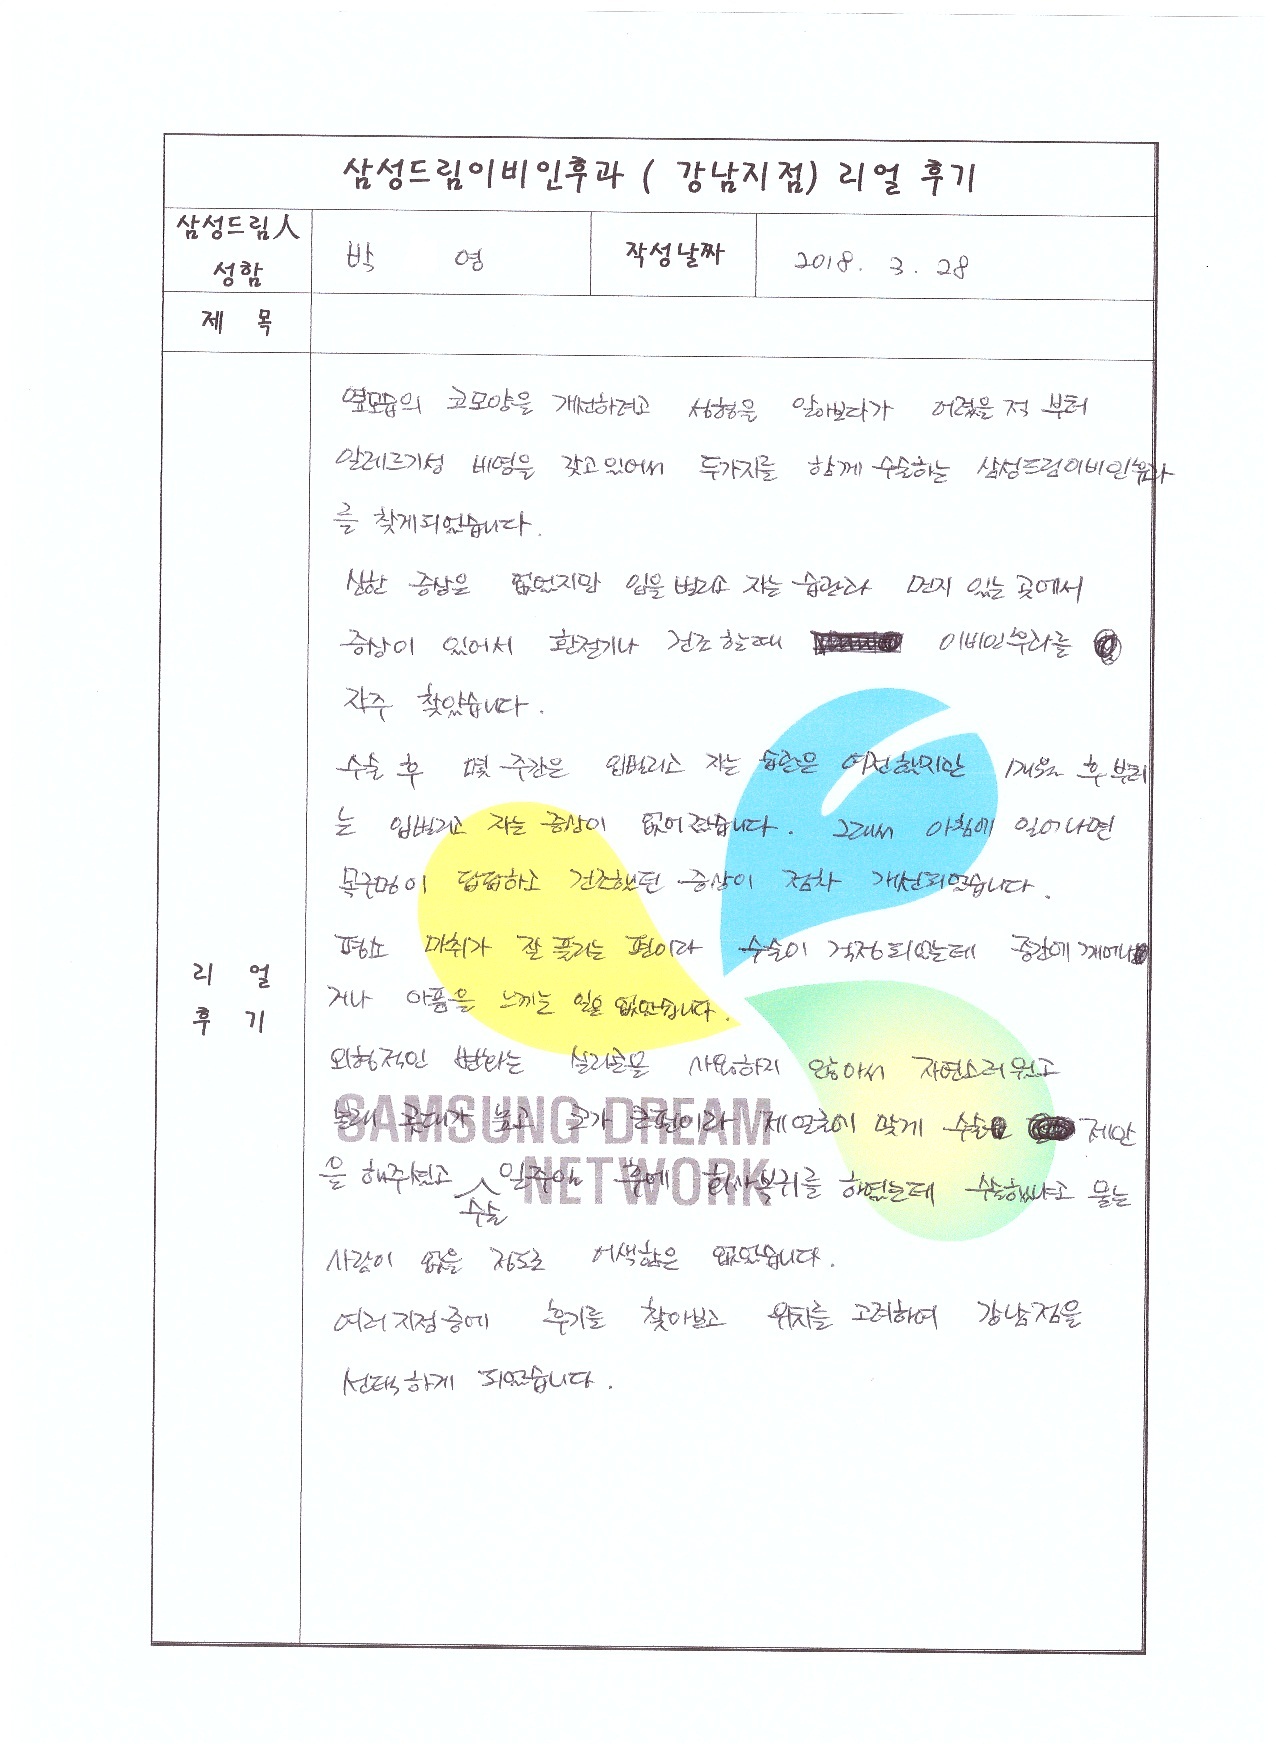 삼성드림이비인후과 ( 강남지점) 리얼 후기
삼성드림人
성함
박 영
작성날짜
2018. 3. 28
제 목
리 얼
후 기
옆모습의 코모양을 개선하려고 성형을 알아보다가 어렸을 적 부터
알레르기성 비염을 갖고있어서 두가지를 함께 수술하는 삼성드림이비인후과
를 찾게되었습니다.
심한 증상은 없었지만 입을 벌리고 자는 습관과 먼지 있는 곳에서
증상이 있어서 환절기나 건조할때 이비인후과를
자주 찾았습니다.
수술 후 몇 주간은 입벌리고 자는 습관은 여전했지만 1개월 후 부터
는 입벌리고 자는 증상이 없어졌습니다. 그래서 아침에 일어나면
목구멍이 답답하고 건조했던 증상이 점차 개선되었습니다.
평소 마취가 잘 풀리는 편이라 수술이 걱정되었는데 중간에 깨어나
거나 아픔을 느끼는 일은 없었습니다.
외형적인 변화는 실리콘을 사용하지 않아서 자연스러웠고
본래 콧대가 높고 코가 큰편이라 제 얼굴에 맞게 수술 제안
을 해주셨고 수술 일주일 후에 회사복귀를 하였는데 수술했냐고 묻는
사람이 없을 정도로 어색함은 없었습니다.
여러 지점중에 후기를 찾아보고 위치를 고려하여 강남점을
선택하게 되었습니다.
SAMSUNG DREAM
NETWORK